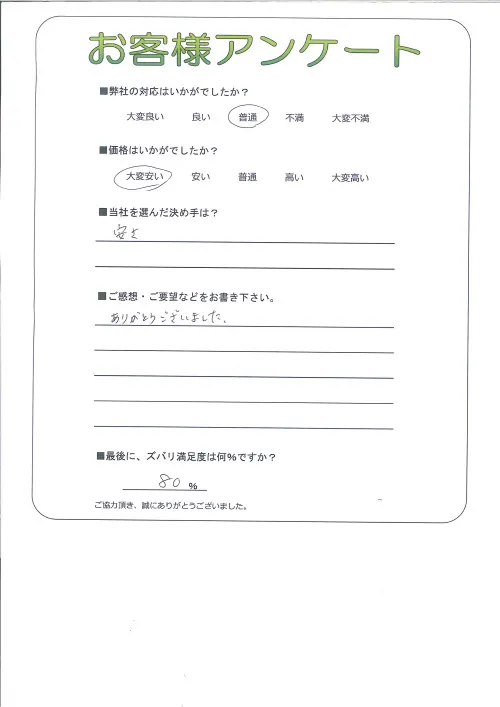 お客様アンケート
■弊社の対応はいかがでしたか？
大変良い 良い 普通 不満 大変不満
■価格はいかがでしたか？
大変安い 安い 普通 高い 大変高い
■当社を選んだ決め手は？
安さ
■ご感想・ご要望などをお書き下さい。
ありがとうございました。
■最後に、ズバリ満足度は何％ですか？
80 ％
ご協力頂き、誠にありがとうございました。